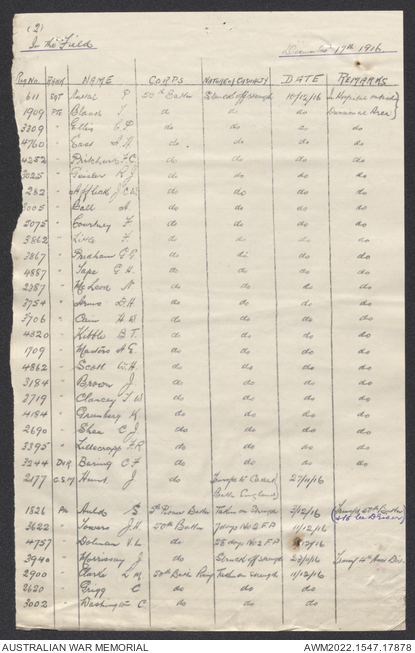 (2)
In the Field December 17th 1916
Reg No. Rank NAME CORPS NATURE OF CASUALTY DATE REMARKS
611 SGT P 50th Battn Struck off strength 15/12/16 In Hospital outside
1909 Pte do do do Divisional Area
3309 " Ellis do do do
4760 " do do do
4252 " Pritchard F.C. do do do
3025 " K.J. do do do
262 " Affleck J.C.W. do do do
3005 " Ball A. do do do
2075 " Courtney F. do do do
3862 " Little F. do do do
3867 " Pridham G.G. do do do
4887 " Tape G.H. do do do
2387 " McLeod N. do do do
3754 " D.H. do do do
3706 " Cain H.W. do do do
4320 " Kibble B.T. do do do
1709 " Masters A.E. do do do
4862 " Scott W.H. do do do
3184 " Brown J. do do do
2719 " Clancey T.W. do do do
4184 " Grunberg K. do do do
2690 " Shea C.J. do do do
3395 " F.R. do do do
3244 Dvr Bering C.F. do do do
2177 C.S.M Hunt J. do Transf to Cadet 27/11/16
Battn England
1826 Pte Auld S. 5th Pioneer Battn Taken on Strength 9/12/16 Transf 50th Battn
3622 " Towers J.H. 50th Battn 7 days No 2 F.P. 11/12/16
4757 " Dolman V.L. do 28 days No 2 F.P.
3940 " Morrissey J. do Struck off strength
2900 " Clarke L.M. 50th Battn Taken on strength 11/12/16
2620 " Grigg C. do do do
3002 " Washington C. do do do
AUSTRALIAN WAR MEMORIAL AWM2022.1547.17878